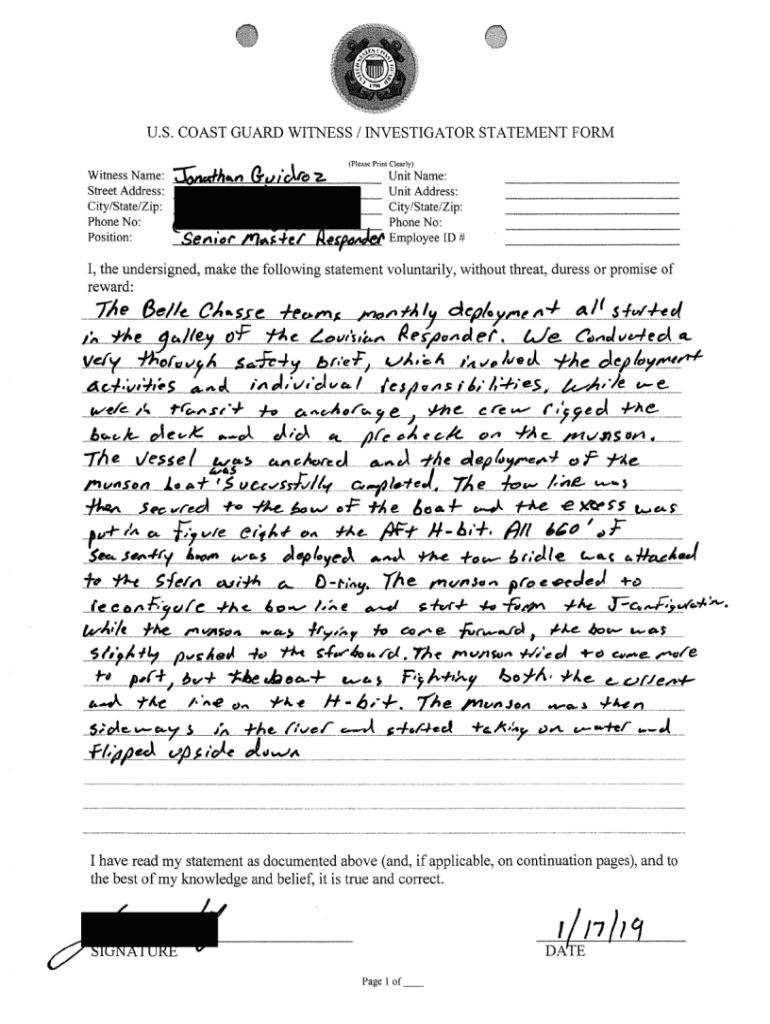 U.S. COAST GUARD WITNESS / INVESTIGATOR STATEMENT FORM
(Please Print Clearly)
Witness Name: Jonathan Guidroz Unit Name:
Street Address: Unit Address:
City/State/Zip: City/State/Zip:
Phone No: Phone No:
Position: Senior Master Responder Employee ID #
I, the undersigned, make the following statement voluntarily, without threat, duress or promise of
reward:
The Belle Chasse teams monthly deployment all started
in the galley of the Louisian Responder. We Conducted a
very thorough safety brief, which involved the deployment
activities and individual responsibilities, While we
were in transit to anchorage, the crew rigged the
back deck and did a precheck on the munson.
The vessel was anchored and the deployment of the
munson boat was successfully completed. The tow line was
then secured to the bow of the boat and the excess was
put in a figure eight on the Aft H-bit. All 660' of
Sea sentry boom was deployed and the tow bridle was attached
to the Stern with a D-ring. The munson proceeded to
reconfigure the bow line and start to form the J-configuration.
While the munson was trying to come forward, the bow was
slightly pushed to the starboard. The munson tried to come more
to port, but the boat was Fighting both the current
and the line on the H-bit. The munson was then
sideways in the river and started taking on water and
flipped upside down
I have read my statement as documented above (and, if applicable, on continuation pages), and to
the best of my knowledge and belief, it is true and correct.
1/17/19
SIGNATURE DATE
Page 1 of